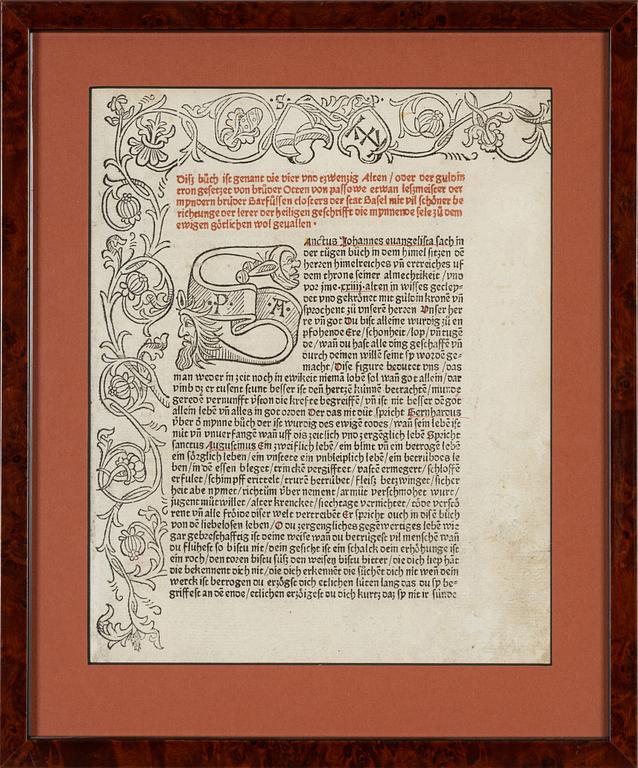 ·S· P·
Disz bůch ist genant die vier vnd zwenzig Alten / oder der guldin
tron gesetzet von brůder Otten von passowe etwan leszmeister der
myndern brůder Barfůssen closters der stat Basel mit vil schöner be
richtunge der lerer der heiligen geschrifft die mynnende sele zů dem
ewigen götlichen wol geuallen ·
Sanctus Johannes euangelista sach in
der tügen bůch in dem himel sitzen dē
herren himelreiches vn̄ ertreiches uf
dem throne seiner almechtikeit / vnd
vor jme ·xxiiij· alten in wisses gecley-
det vnd gekrönet mit guldin kronē vn̄
sprochent zů vnserē herren Vnser her
re vn̄ got Du bist alleine wurdig zů en
pfohende Ere / schonheit / lop / vn̄ tugē
de / wan̄ du hast alle ding geschaffē vn̄
durch deinen willē seint sy wordē ge-
macht / Dise figure bedutet vns / das
·P· ·A·
man weder in zeit noch in ewikeit niemā lobē sol wan̄ got allein / dar
vmb dz er tusent stunt besser ist den̄ hertze kün̄e betrachtē / munde
geredē vernunfft vsson die krefte begreiffē / vn̄ ist nit besser dē got
allein lebē vn̄ alles in got orden Der das nit důt spricht Bernhardus
ist wurdig des ewigē todes / wan̄ sein lebē ist
mit vn̄ vnuerfangē wan̄ uff dis zeitlich vnd zergēglich lebē Spricht
sanctus Augustinus Ein zweiflich lebē / ein blint vn̄ ein betrogē lebē
ein sörglich leben / ein vnstete ein vnbleiplich lebē / ein betrübdes le
ben / in dē essen bleget / trinckē vergifftet / vastē ermegert / schloffē
erfulet / schimpff ertrelt / trurē betrübet / fleisz betzwinget / sicher
heit abe nymet / richtům übernement / armůt verschmohet wurt /
jugent můtwillet / alter krencket / siechtage vernichtet / tōde verstö
rent vn̄ alle fröide diser welt vertreibēt Er spricht ouch in disē bůch
von dē liebelosen leben / O du zergengliches gegēwertiges lebē wie
gar gebresthafftig ist deine weise wan̄ du betrügest vil menschē wan̄
du flühest so bistu nit / dein gesicht ist ein schatt dein erhöhunge ist
ein roch / den toren bistu süß den weisen bistu bitter / die dich liep hāt
die bekennent dich nit / die dich erkennēt die süchēt dich nit wen̄ dein
werck ist betrogen du erzögst dich etlichen lüten lang das du sy be-
griffest an dē ende / etlichen erzöigest du dich kurtz daz sy nit ir sünde